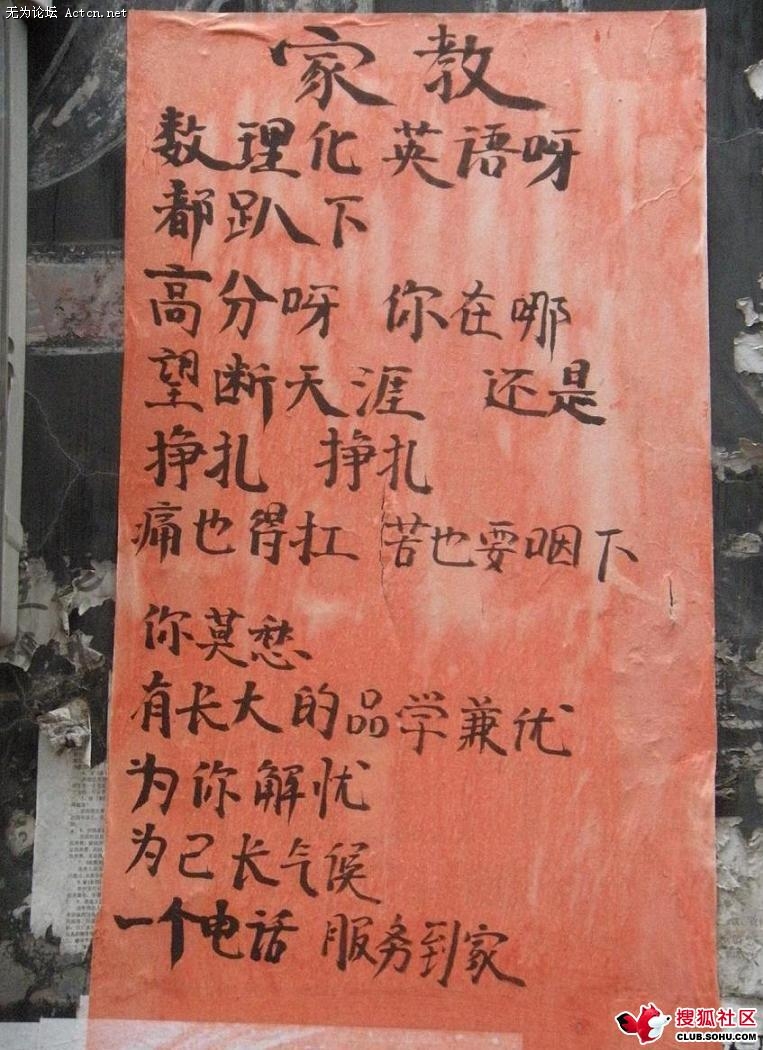 无为论坛 Actcn.net
家教
数理化 英语呀
都趴下
高分呀 你在哪
望断天涯 还是
挣扎 挣扎
痛也得扛 苦也要咽下
你莫愁
有长大的品学兼优
为你解忧
为己长气候
一个电话 服务到家
搜狐社区
CLUB.SOHU.COM